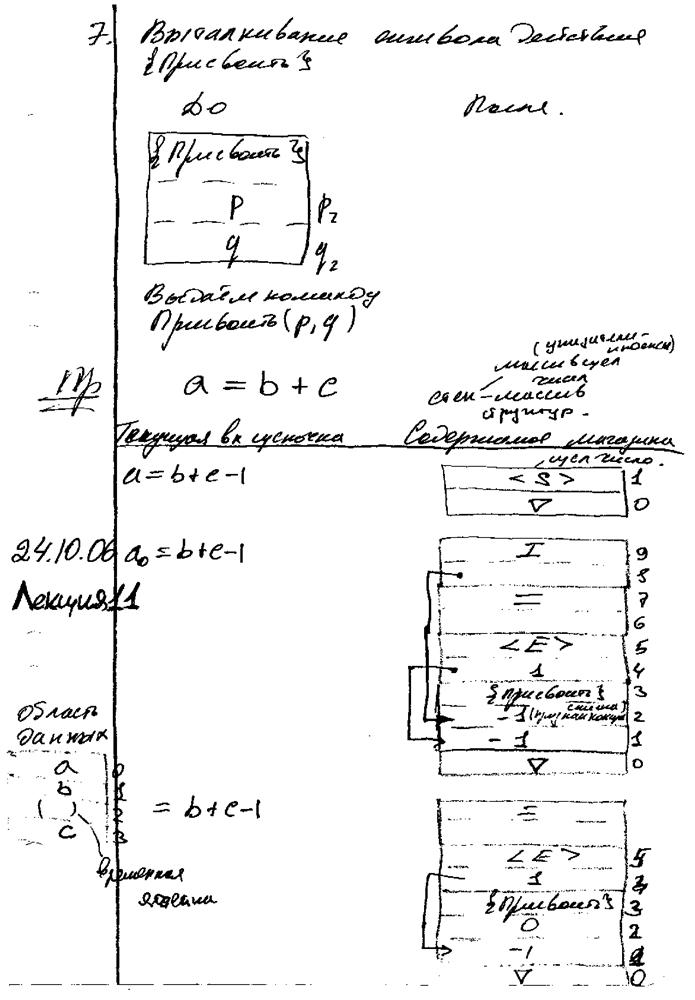 7. Выталкивание символа действия
{Присвоить}
До После.
{Присвоить}
p p₂
q q₂
Выдаём команду
Присвоить (p, q)
Пр a = b + c
(указатели-
массив цел
чисел
стек - массив
структур.
Текущая вх цепочка Содержимое магазина
цел число.
a = b + c ⊣
<S> 1
▽ 0
24.10.06 a₀ = b + c ⊣
Лекция 11
I 9
8
= 7
6
<E> 5
1 4
{Присвоить} 3
-1 (признак конца списка) 2
-1 1
▽ 0
Область
данных
a 0
b 1
( ) 2
c 3
временная
ячейка
= b + c ⊣
=
<E> 5
1 4
{Присвоить} 3
0 2
-1 1
▽ 0